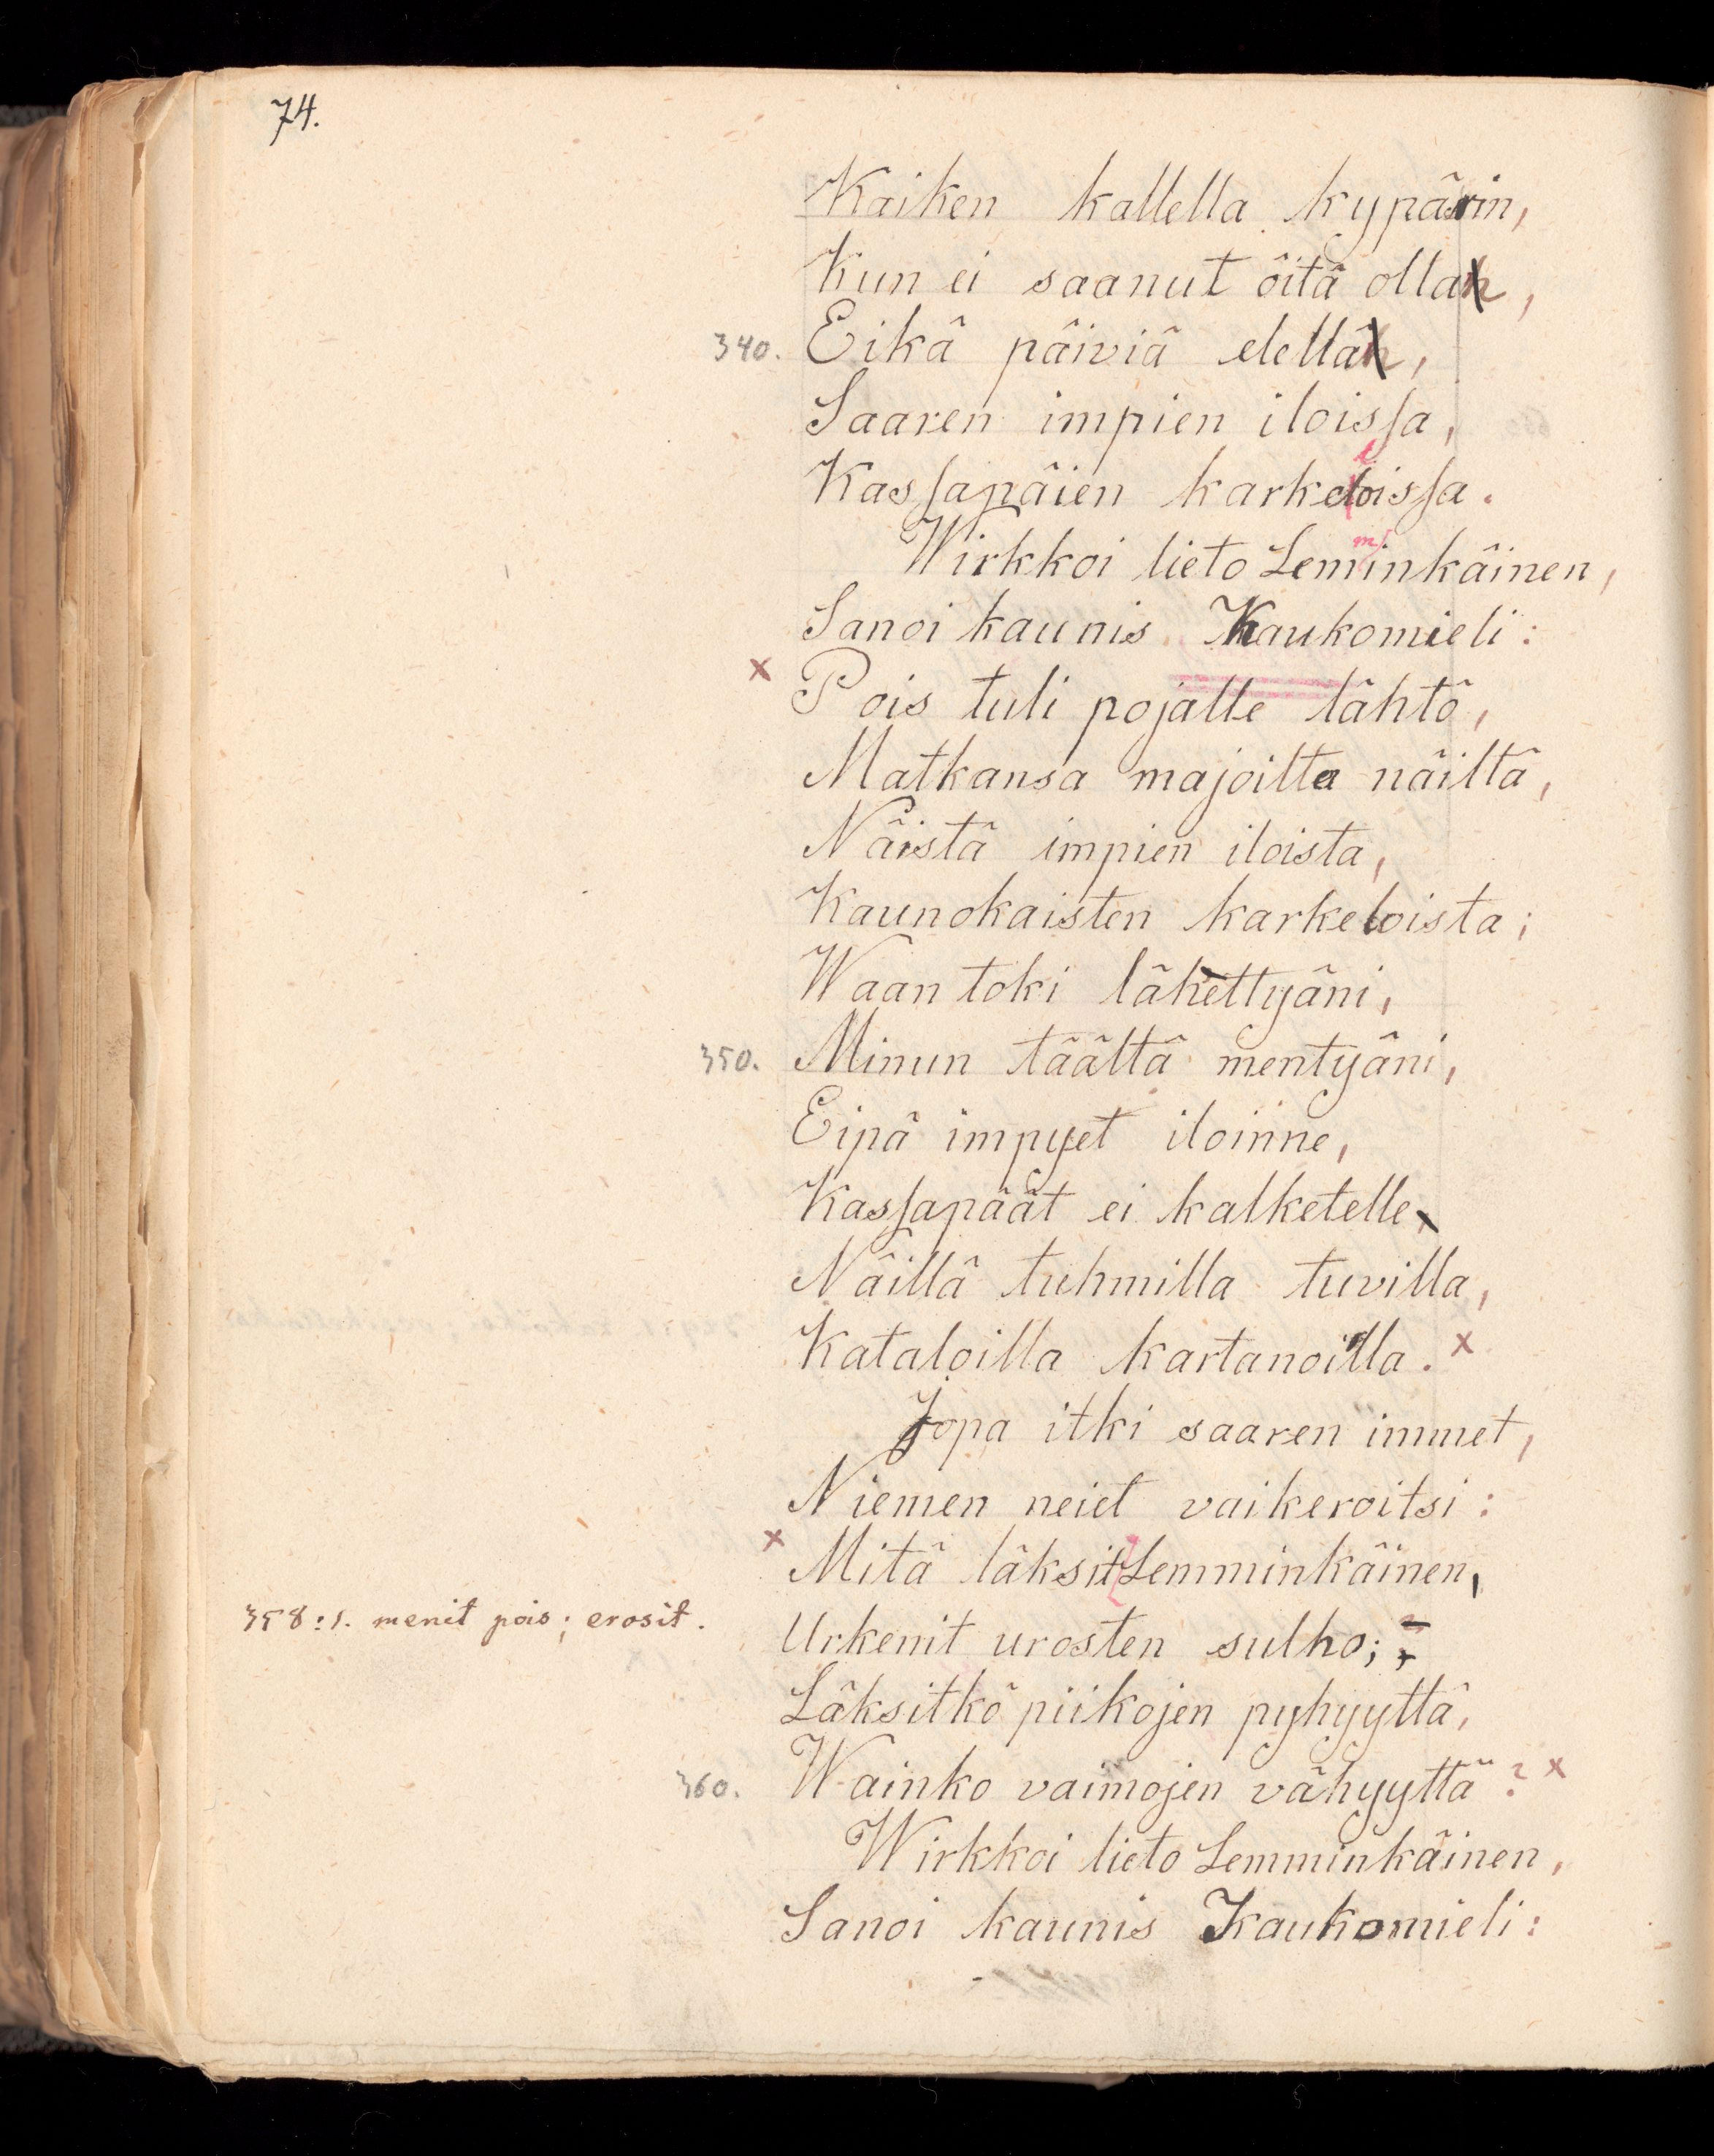 74.
Kaiken kallella kypärin,
Kun ei saanut öitä olla,
340. Eikä päiviä elellä,
Saaren impien iloissa,
Kassapäien karkeloissa.
Wirkkoi lieto Lemminkäinen,
Sanoi kaunis Kaukomieli:
x Pois tuli pojalle lähtö,
Matkansa majoilta näiltä,
Näistä impien iloista,
Kaunokaisten karkeloista;
Waan toki lähettyäni,
350. Minun täältä mentyäni,
Eipä impyet iloinne,
Kassapäät ei kalketelle
Näillä tuhmilla tuvilla,
Kataloilla kartanoilla. x
Jopa itki saaren immet,
Niemen neiet vaikeroitsi:
x Mitä läksit Lemminkäinen,
358: s. menit pois; erosit.
Urkenit urosten sulho;
Läksitkö piikojen pyhyyttä,
360. Wainko vaimojen vähyyttä? x
Wirkkoi lieto Lemminkäinen,
Sanoi kaunis Kaukomieli: